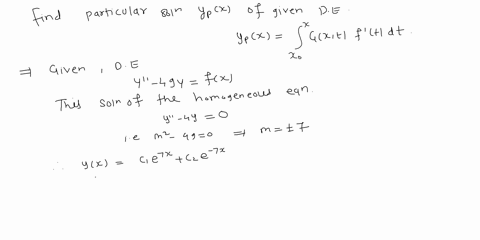 find particular soln yp(x) of given D.E
yp(x) = ∫_{x0}^{x} G(x,t) f'(t) dt.
⇒ Given, D.E
y'' - 49y = f(x)
This soln of the homogeneous eqn.
y'' - 4y = 0
i.e m² - 49 = 0 ⇒ m = ± 7
∴ y(x) = c1 e^{7x} + c2 e^{-7x}